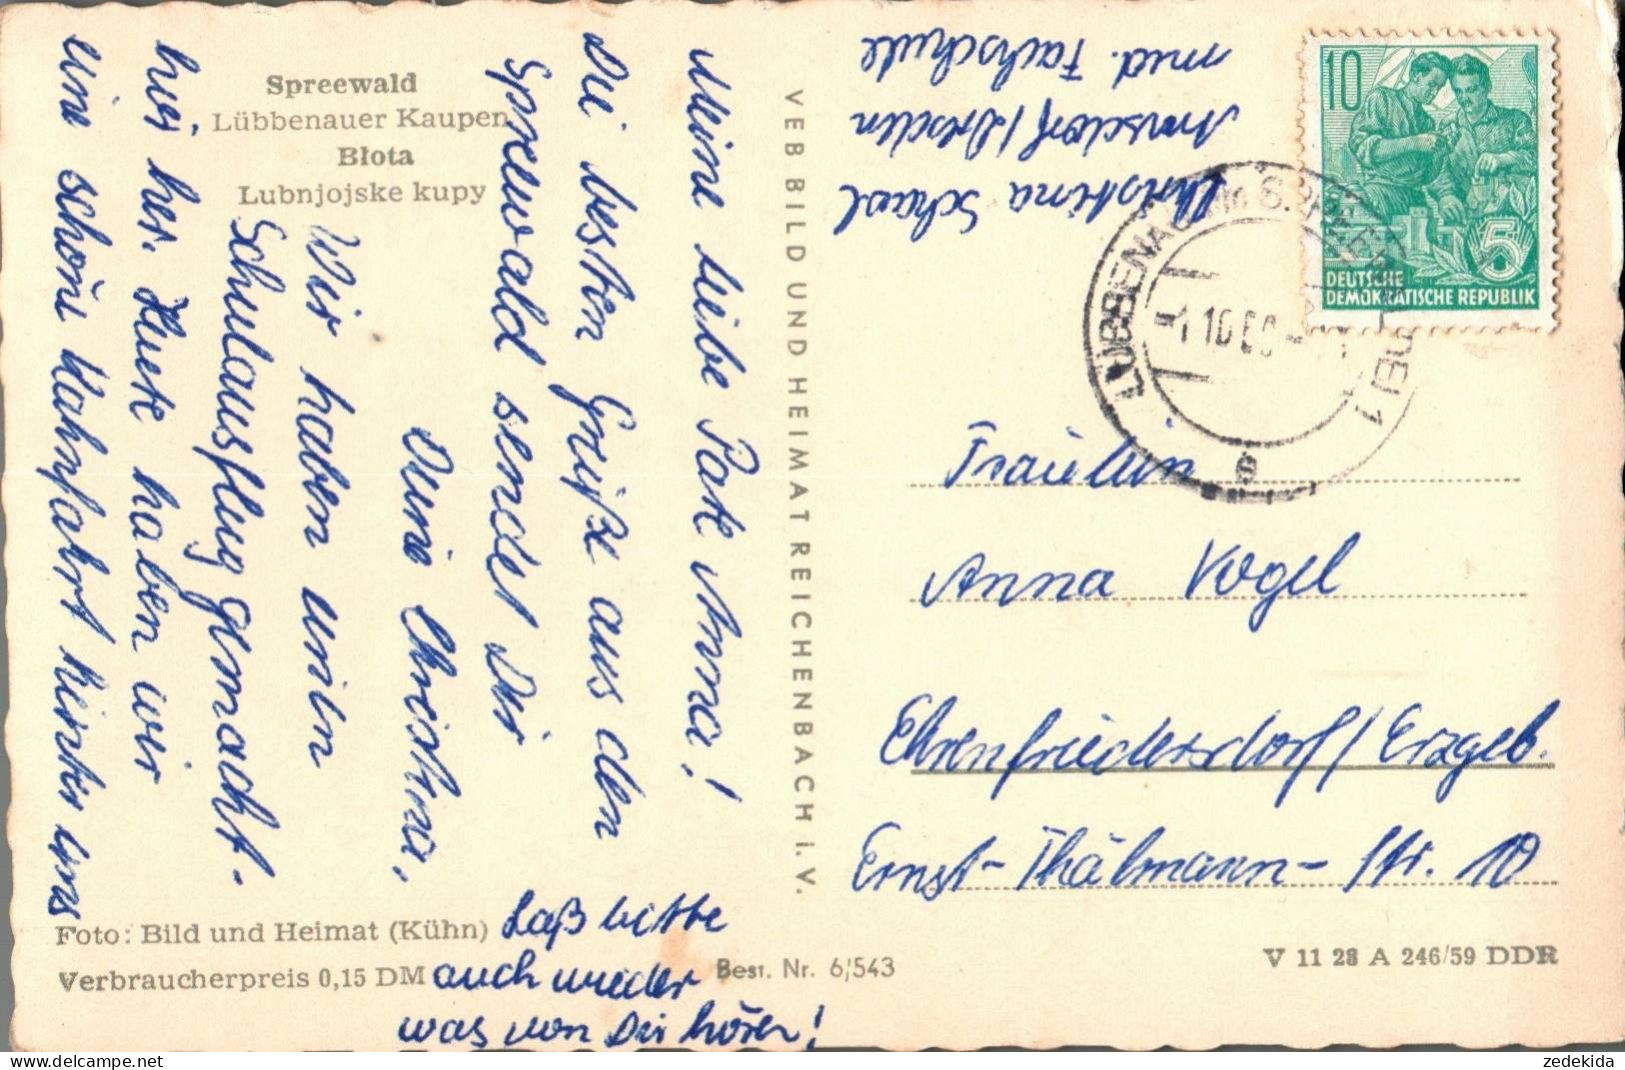 Spreewald
Lübbenauer Kaupen
Błota
Lubnjojske kupy
Meine liebe Pat. Anna!
Die besten Grüße aus den
Spreewald sendet Dir
Deine Christina.
Wir haben unsern
Schulausflug gemacht.
hier her. Heute haben wir
eine schöne Kahnfahrt hinter uns
Laß bitte
auch wieder
was von Dir hören!
Foto: Bild und Heimat (Kühn)
Verbraucherpreis 0,15 DM
Best. Nr. 6/543
VEB BILD UND HEIMAT REICHENBACH i. V.
Christina
Arnsdorf/Dresden
med. Fachschule
10
5
DEUTSCHE
DEMOKRATISCHE REPUBLIK
LÜBBENAU
Fräulein
Anna Vogel
Ehrenfriedersdorf/Erzgeb.
Ernst-Thälmann-Str. 10
V 11 28 A 246/59 DDR
zedekida